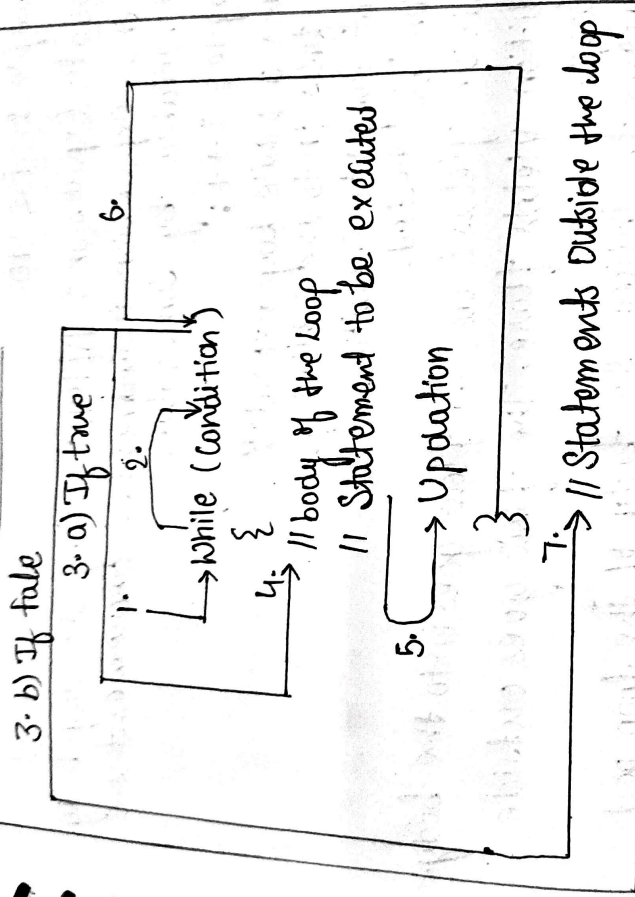 3. b) If fale
3. a) If true
1.
2.
6.
While (Condition)
{
4.
// body of the Loop
// Statement to be executed
5.
Updation
}
7.
// Statements outside the loop